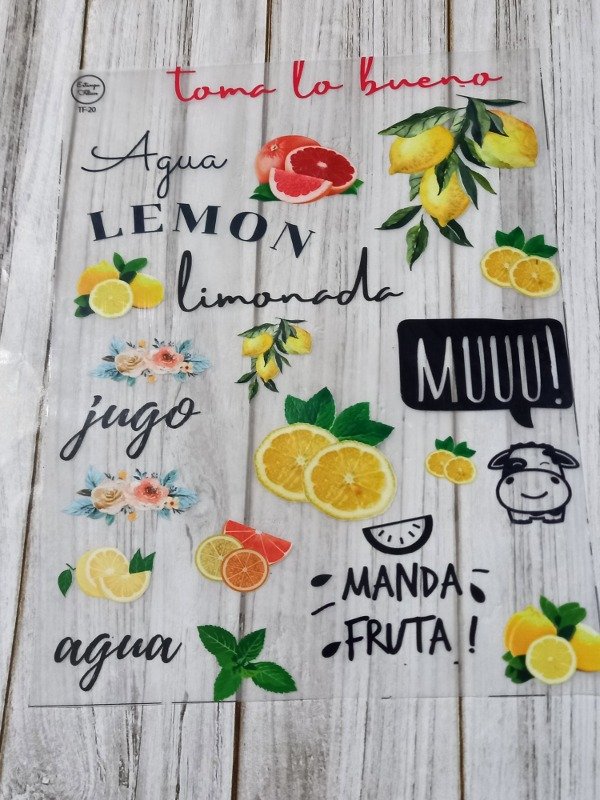 toma lo bueno
TF-20
Agua
LEMON
limonada
MUUU!
jugo
MANDA
FRUTA!
agua